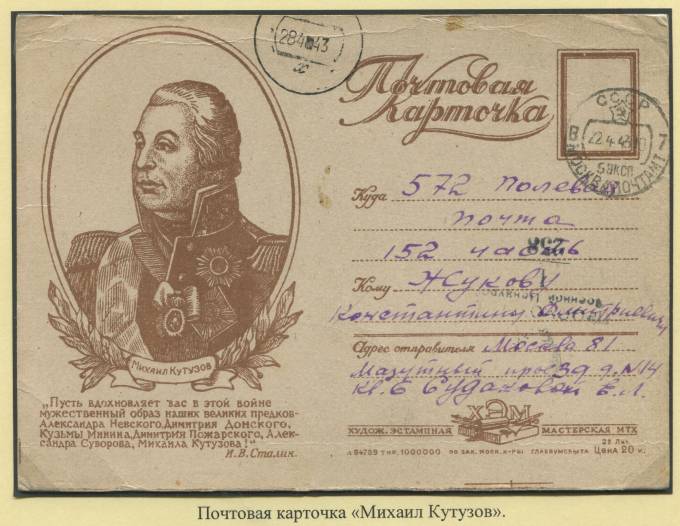 28 4 43
Почтовая
Карточка
СССР
В 22.4.43 7
5 ЭКСП
МОСКВА ПОЧТАМТ
Куда 572 Полевая
почта
152 часть
Кому Жукову
Константину Дмитриевичу
Адрес отправителя Москва 81
Мазутный проезд д. №14
кв. 6 Судаковой Е.Л.
Михаил Кутузов
„Пусть вдохновляет вас в этой войне
мужественный образ наших великих предков-
Александра Невского, Димитрия Донского,
Кузьмы Минина, Димитрия Пожарского, Алек-
сандра Суворова, Михаила Кутузова!"
И. В. Сталин.
ХЭМ
ХУДОЖ. ЭСТАМПНАЯ МАСТЕРСКАЯ МТХ
Л 84789 ТИР. 1000000 ПО ЗАК. МОСК. К-РЫ ГЛАВКУМСБЫТА Цена 20 к.
Почтовая карточка «Михаил Кутузов».